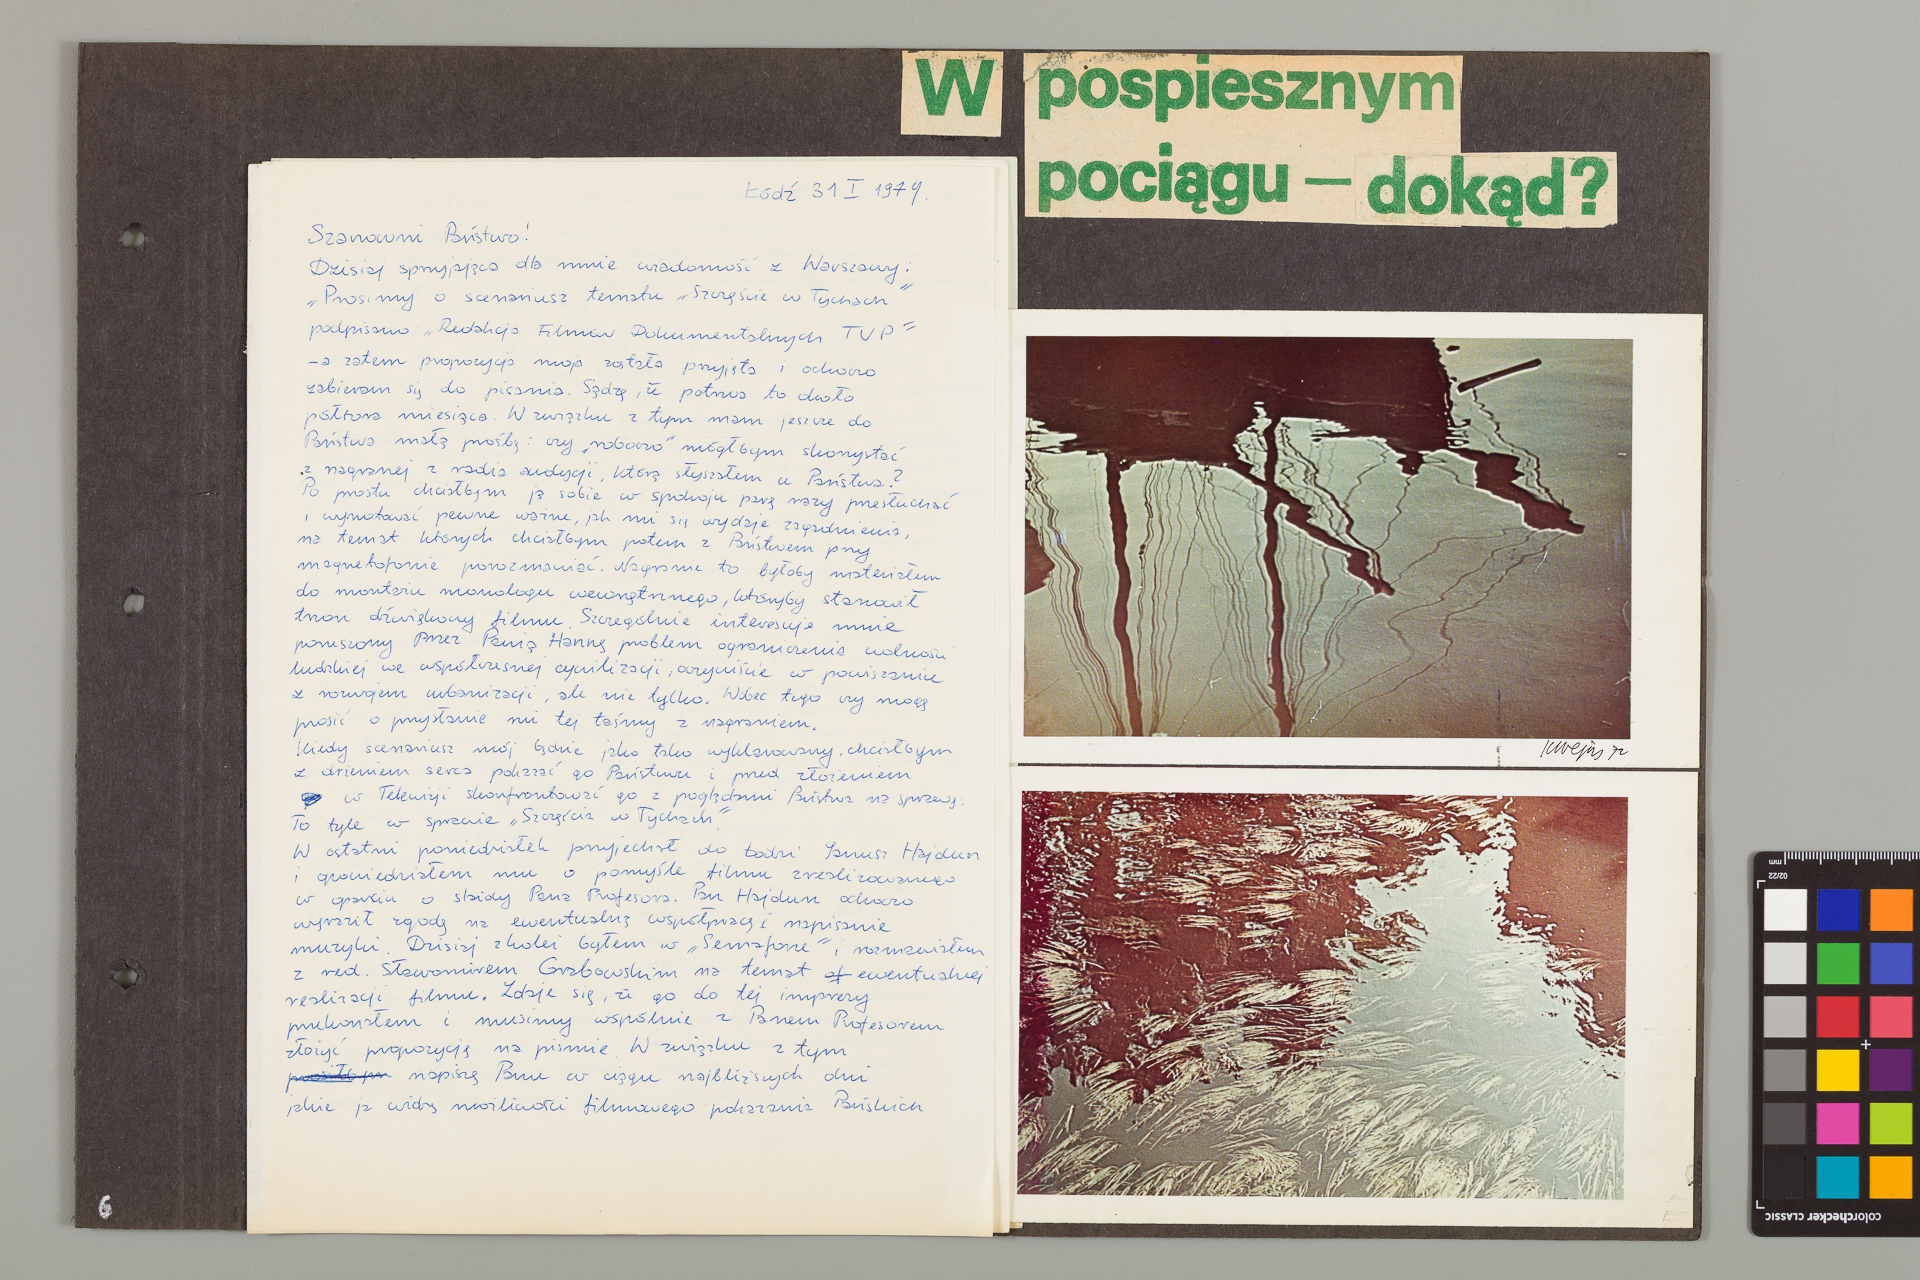 W pospiesznym
pociągu – dokąd?
Łódź 31 I 1979.
Szanowni Państwo!
Dzisiaj sprzyjająca dla mnie wiadomość z Warszawy:
„Prosimy o scenariusz tematu „Szczęście w Tychach”
podpisano „Redakcja Filmów Dokumentalnych TVP”
– a zatem propozycja moja została przyjęta i ochoczo
zabieram się do pisania. Sądzę, że potrwa to około
półtora miesiąca. W związku z tym mam jeszcze do
Państwa małą prośbę: czy „roboczo” mógłbym skorzystać
z nagranej z radia audycji, którą słyszałem u Państwa?
Po prostu chciałbym ją sobie w spokoju parę razy przesłuchać
i wynotować pewne ważne, jak mi się wydaje zagadnienia,
na temat których chciałbym potem z Państwem przy
magnetofonie porozmawiać. Nagranie to byłoby materiałem
do montażu monologu wewnętrznego, któryby stanowił
trzon dźwiękowy filmu. Szczególnie interesuje mnie
poruszony przez Panią Hannę problem ograniczenia wolności
ludzkiej we współczesnej cywilizacji, oczywiście w powiązaniu
z rozwojem urbanizacji, ale nie tylko. Wobec tego czy mogę
prosić o przysłanie mi tej taśmy z nagraniem.
Kiedy scenariusz mój będzie jako tako wyklarowany, chciałbym
z drżeniem serca pokazać go Państwu i przed złożeniem
w Telewizji skonfrontować go z poglądami Państwa na sprawę.
To tyle w sprawie „Szczęścia w Tychach”
W ostatni poniedziałek przyjechał do Łodzi Janusz Hajdun
i opowiedziałem mu o pomyśle filmu zrealizowanego
w oparciu o slaidy Pana Profesora. Pan Hajdun ochoczo
wyraził zgodę na ewentualną współpracę i napisanie
muzyki. Dzisiaj z kolei byłem w „Semaforze” i rozmawiałem
z red. Sławomirem Grabowskim na temat ewentualnej
realizacji filmu. Zdaje się, że go do tej imprezy
przekonałem i musimy wspólnie z Panem Profesorem
złożyć propozycję na piśmie. W związku z tym
prosiłbym napiszę Panu w ciągu najbliższych dni
jakie ja widzę możliwości filmowego pokazania Pańskich
6
mm
02/22
colorchecker CLASSIC